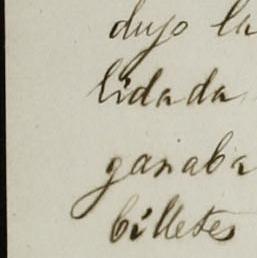 dujo la
lidada
ganaba
billetes